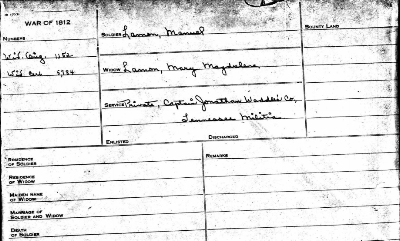 WAR OF 1812
NUMBERS
SOLDIER Lamon, Manuel
BOUNTY LAND
Wid. Orig. 1152
Wid. Cert. 5784
WIDOW Lamon, Mary Magdalene
SERVICE Private, Capt. Jonathan Waddel Co,
Tennessee Militia
ENLISTED
DISCHARGED
RESIDENCE
OF SOLDIER
REMARKS
RESIDENCE
OF WIDOW
MAIDEN NAME
OF WIDOW
MARRIAGE OF
SOLDIER AND WIDOW
DEATH
OF SOLDIER